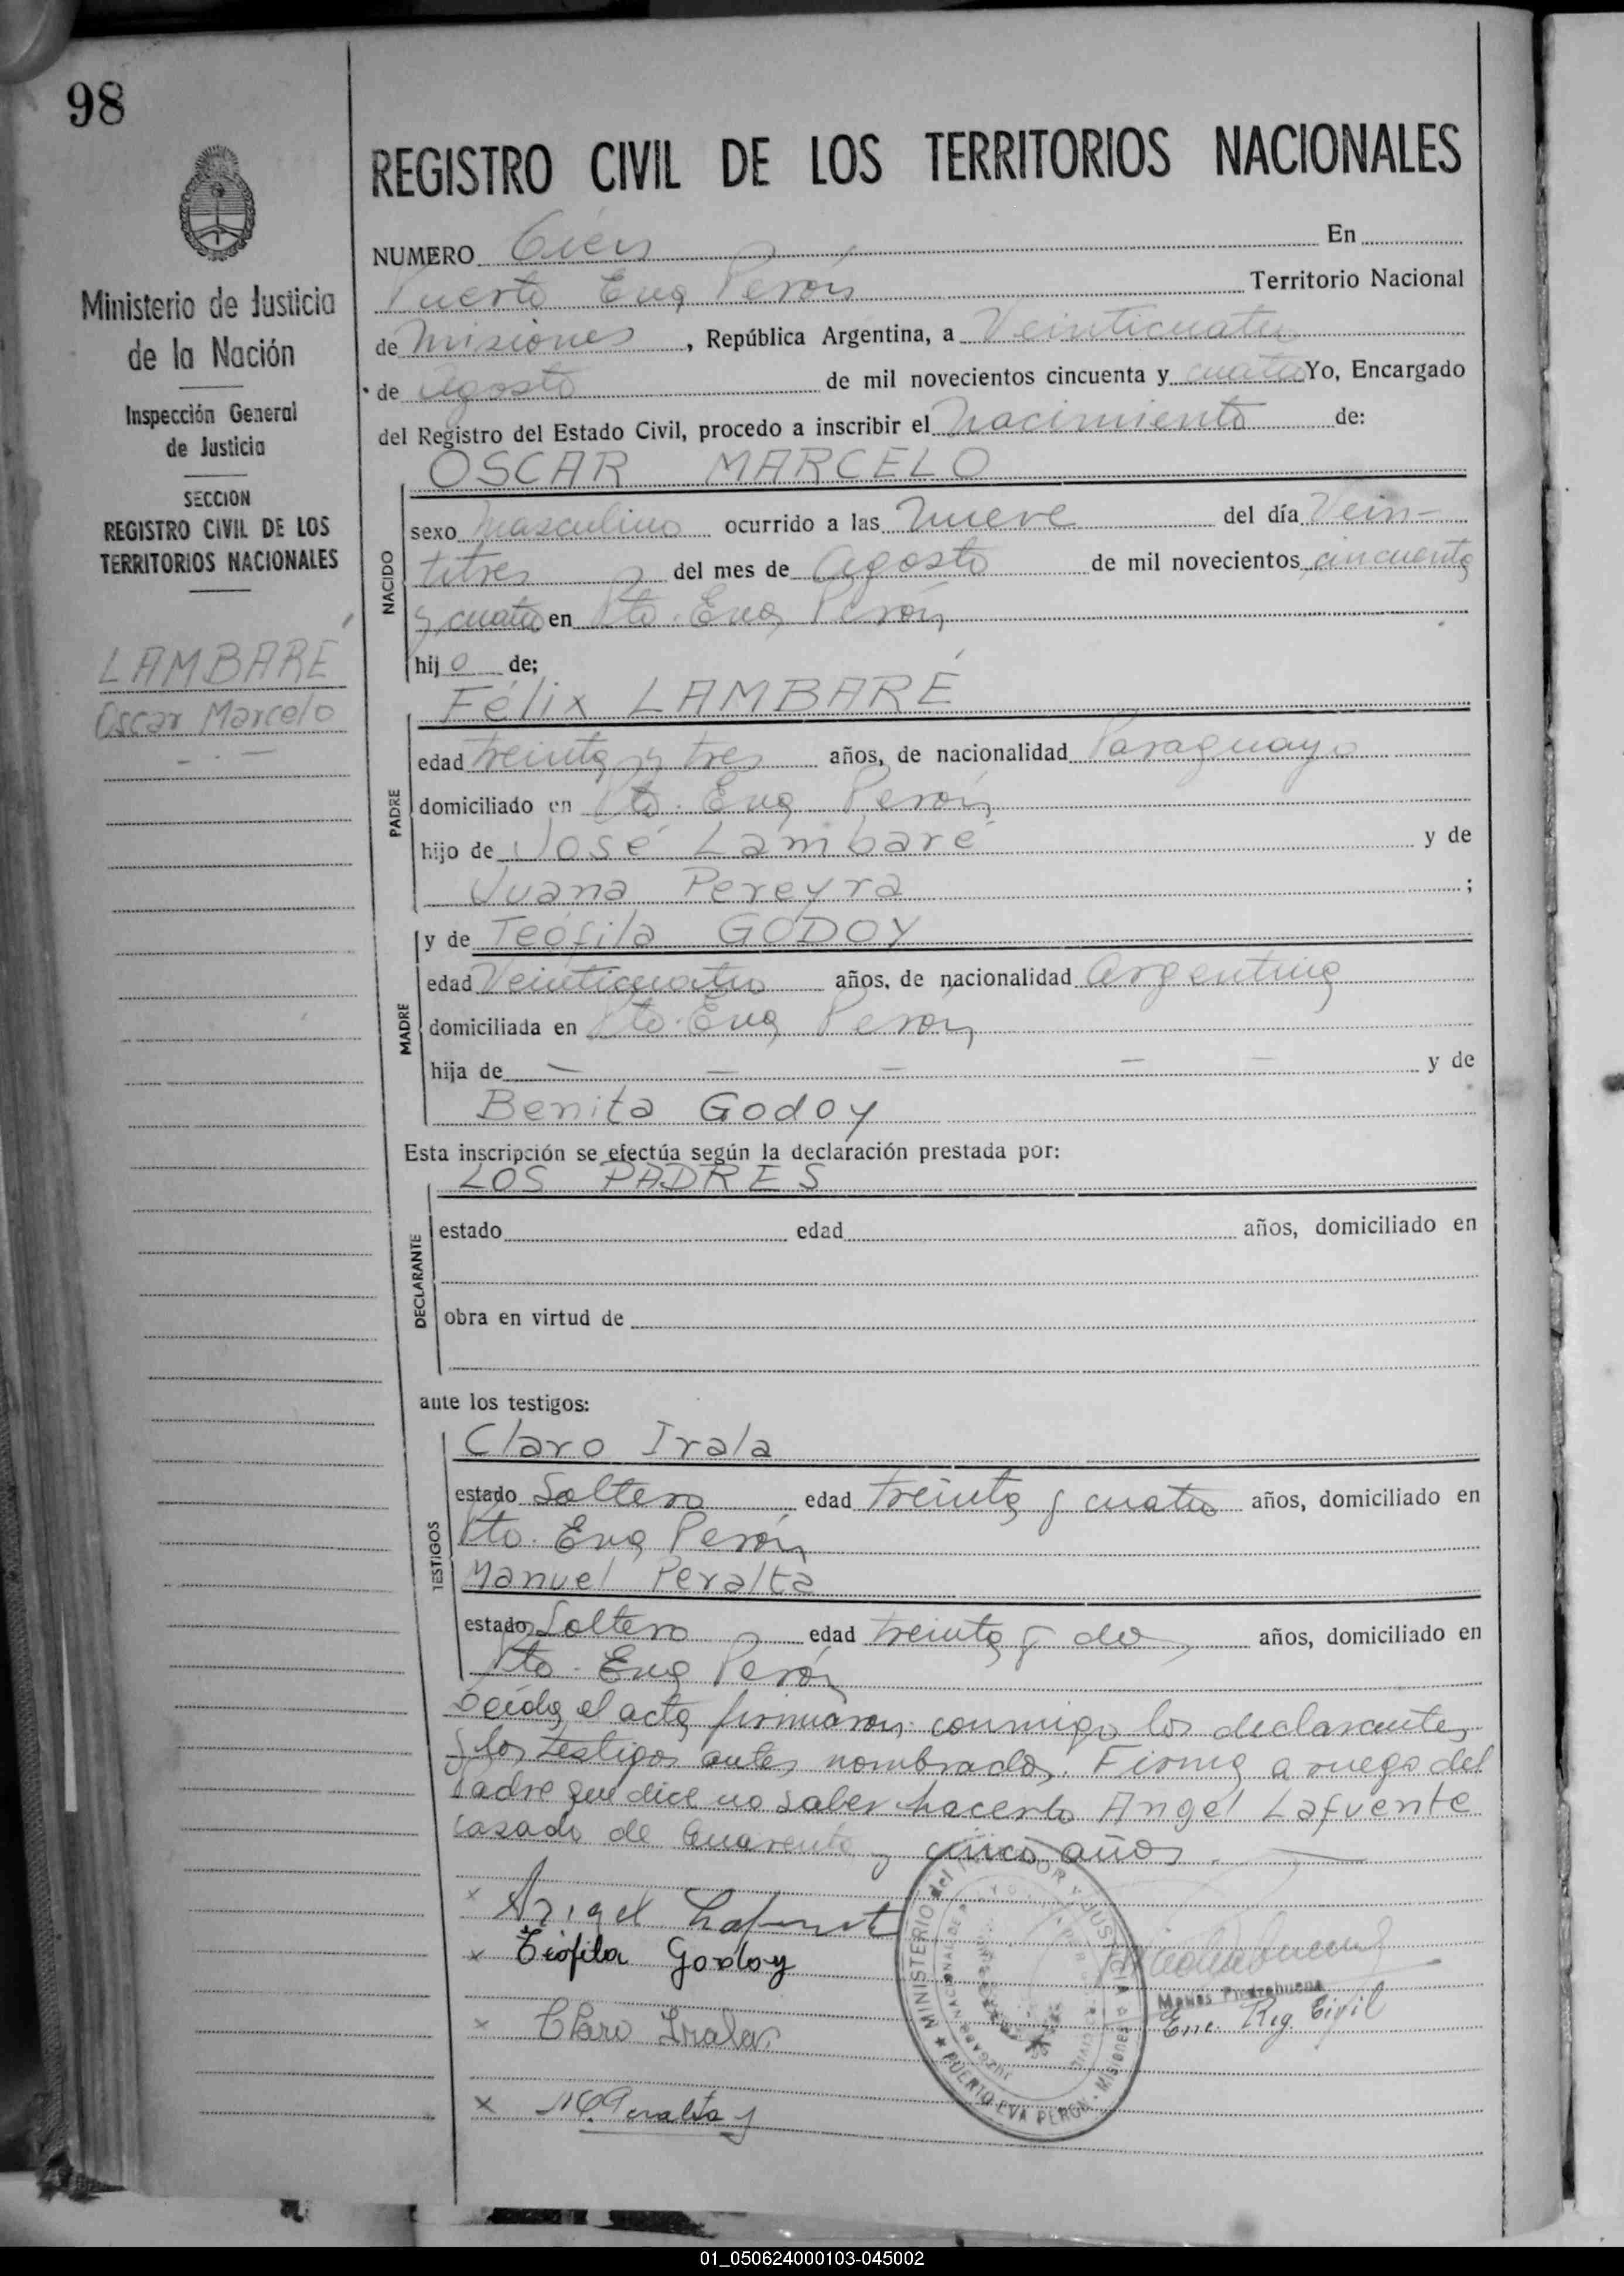 98
REGISTRO CIVIL DE LOS TERRITORIOS NACIONALES
Ministerio de Justicia
de la Nación
Inspección General
de Justicia
SECCION
REGISTRO CIVIL DE LOS
TERRITORIOS NACIONALES
LAMBARÉ
Oscar Marcelo
NUMERO Cien En
Puerto Eva Perón Territorio Nacional
de Misiones, República Argentina, a Veinticuatro
de Agosto de mil novecientos cincuenta y cuatro Yo, Encargado
del Registro del Estado Civil, procedo a inscribir el Nacimiento de:
OSCAR MARCELO
NACIDO
sexo Masculino ocurrido a las Nueve del día Vein-
titres del mes de Agosto de mil novecientos cincuenta
y cuatro en Pto. Eva Perón
hijo de;
Félix LAMBARÉ
PADRE
edad treinta y tres años, de nacionalidad Paraguayo
domiciliado en Pto. Eva Perón
hijo de José Lambaré y de
Juana Pereyra ;
MADRE
y de Teófila GODOY
edad Veinticuatro años, de nacionalidad Argentina
domiciliada en Pto. Eva Perón
hija de — — — — — y de
Benita Godoy
Esta inscripción se efectúa según la declaración prestada por:
LOS PADRES
DECLARANTE
estado edad años, domiciliado en
obra en virtud de
ante los testigos:
TESTIGOS
Claro Irala
estado Soltero edad treinta y cuatro años, domiciliado en
Pto. Eva Perón
Manuel Peralta
estado Soltero edad treinta y dos años, domiciliado en
Pto. Eva Perón
Leída el acta firmaron conmigo los declarantes
y los testigos antes nombrados. Firma a ruego del
Padre que dice no saber hacerlo Angel Lafuente
casado de Cuarenta y cinco años.
x Angel Lafuente
x Teófila Godoy
x Claro Irala
x M. Peralta
MINISTERIO del INTERIOR Y JUSTICIA
PUERTO EVA PERON - MISIONES
Piedrabuena
Enc. Reg. Civil
01_050624000103-045002